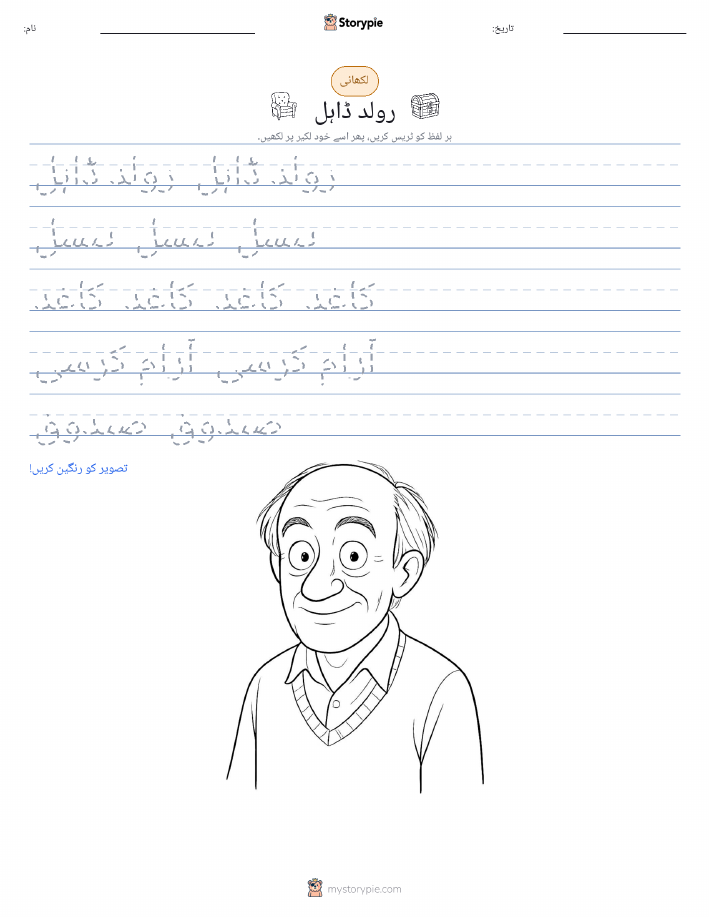 Storypie
نام:
تاریخ:
لکھائی
رولد ڈاہل
ہر لفظ کو ٹریس کریں، پھر اسے خود لکیر پر لکھیں۔
رولد ڈاہل رولد ڈاہل
پنسل پنسل پنسل
کاغذ کاغذ کاغذ کاغذ
آرام کرسی آرام کرسی
صندوق صندوق
تصویر کو رنگین کریں!
mystorypie.com